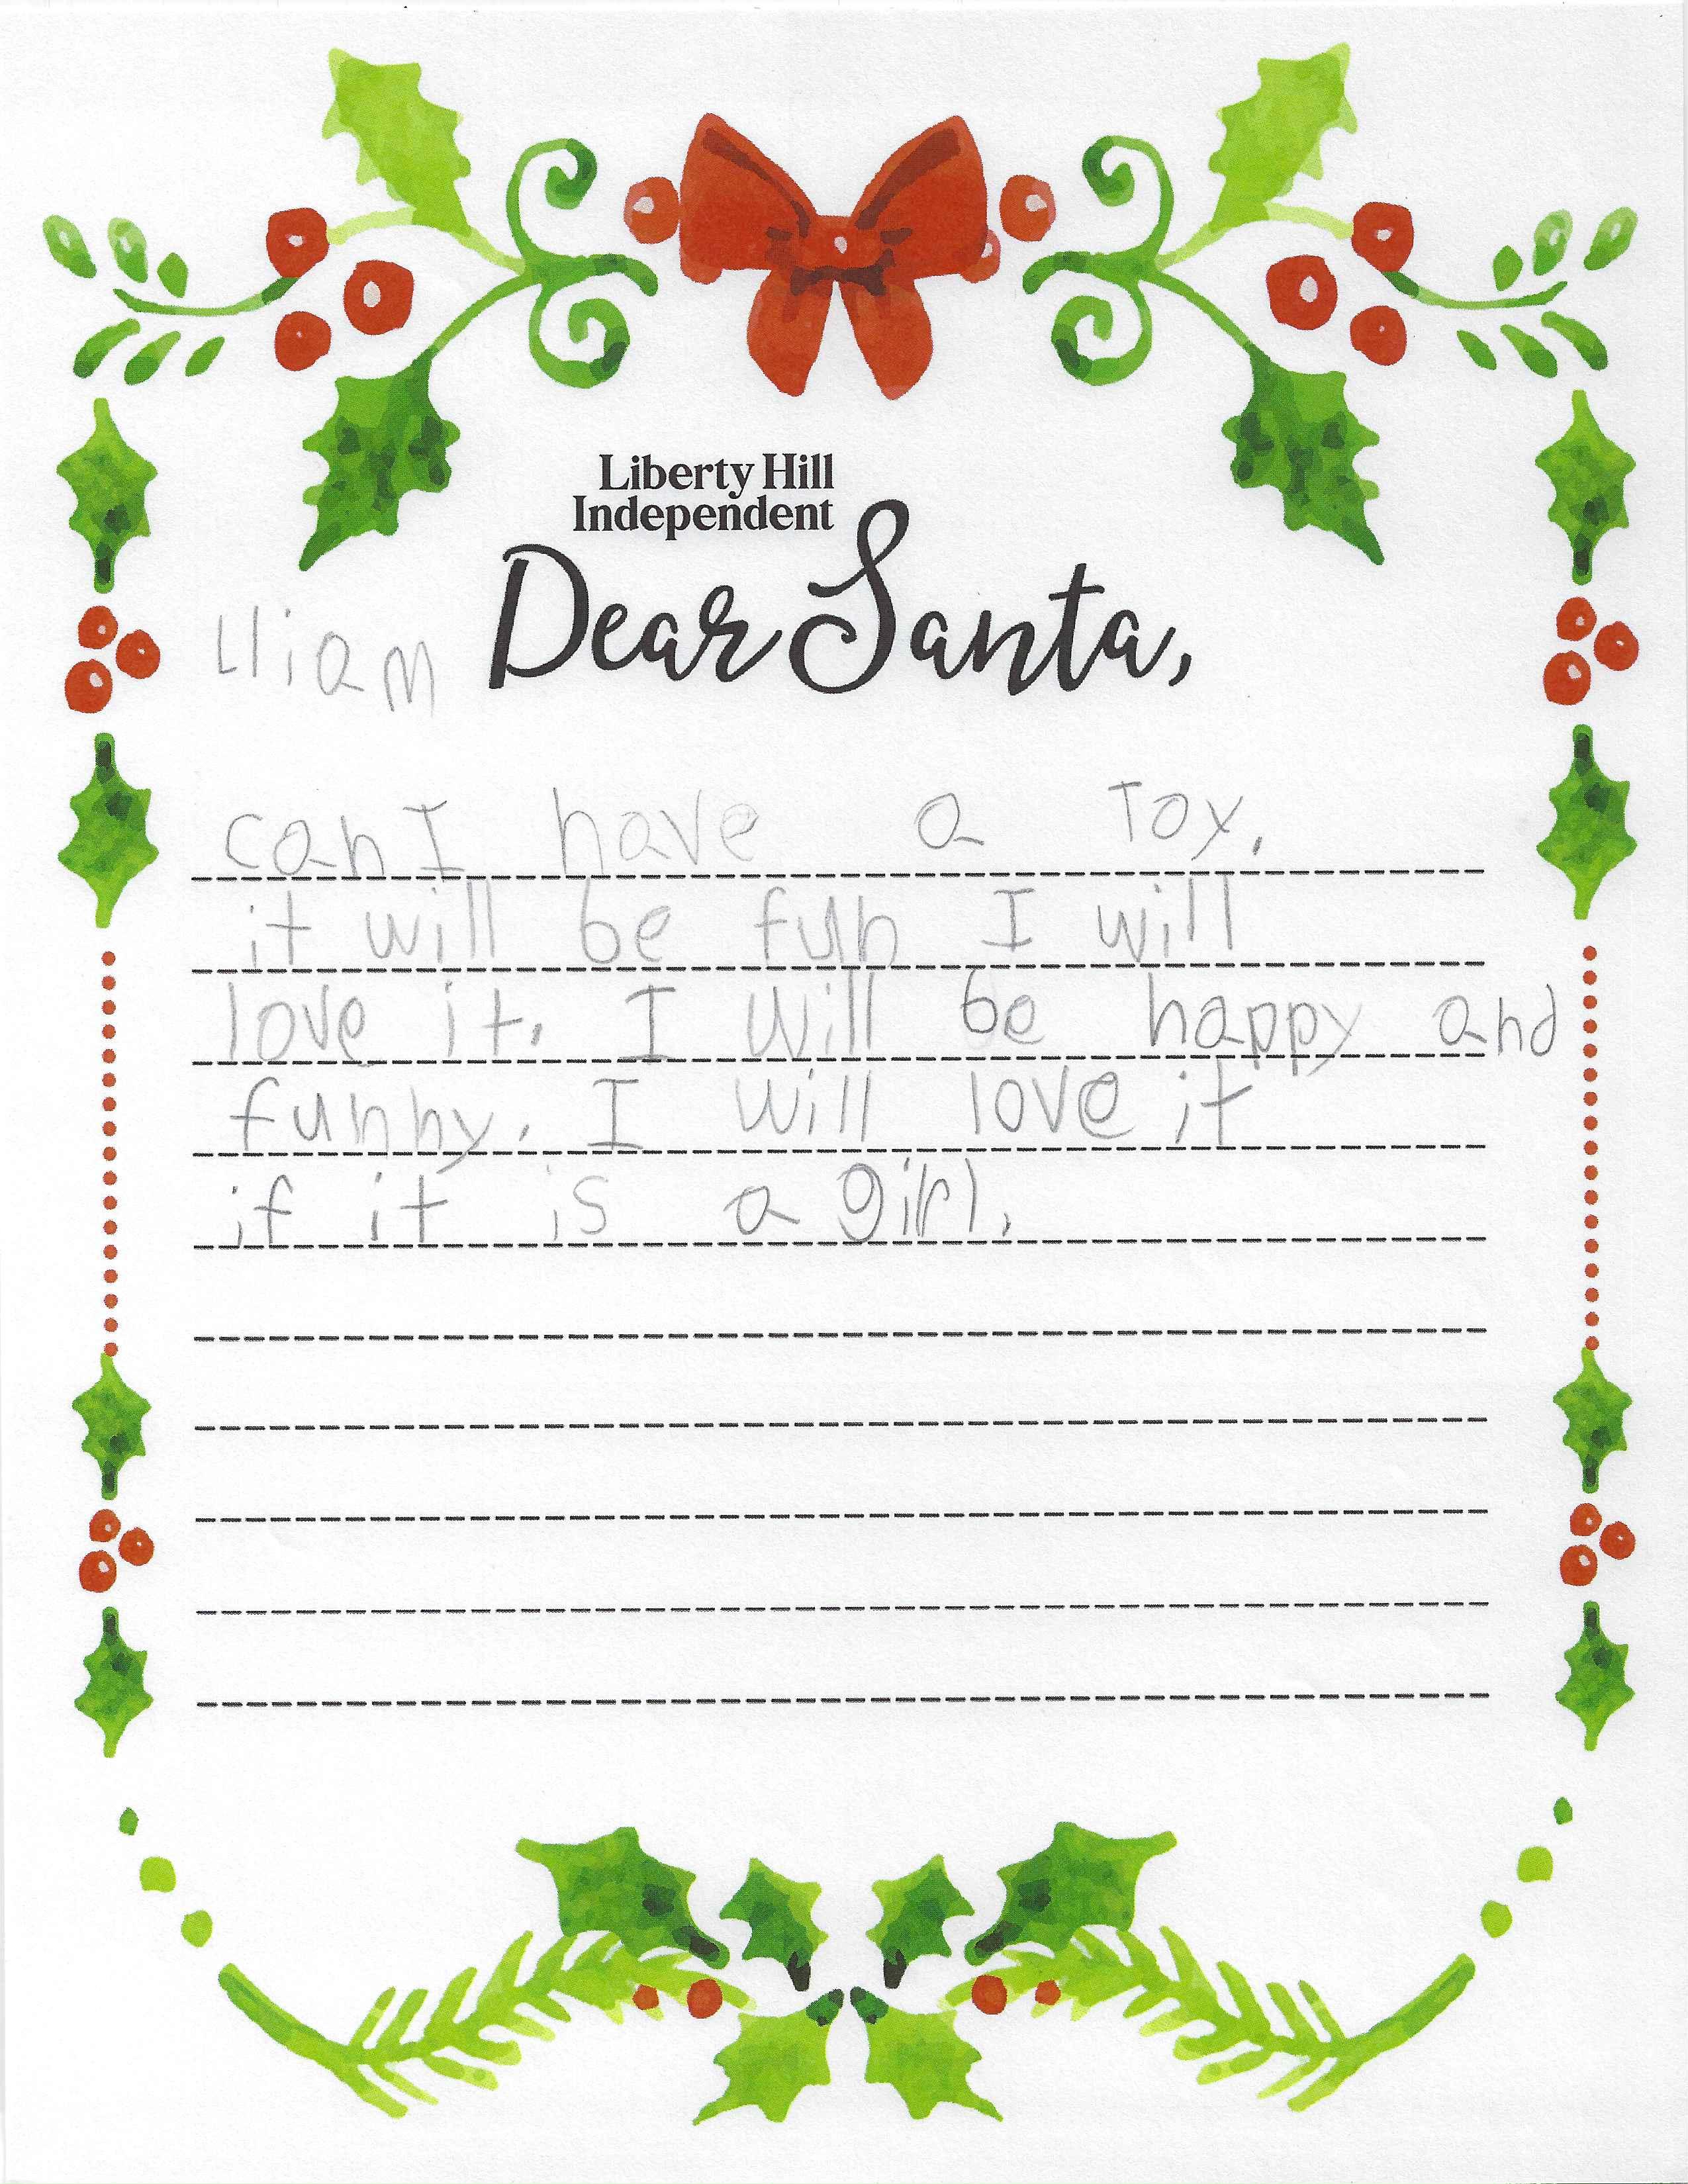 Liberty Hill
Independent
Dear Santa,
Lliam
can I have a Toy.
it will be fun I will
love it. I will be happy and
funny. I will love it
if it is a girl.